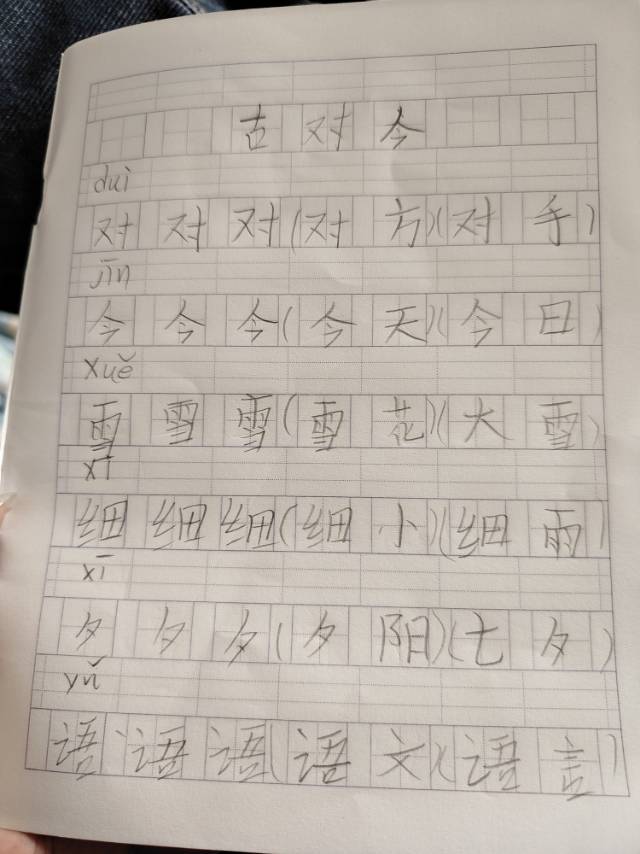 古对今
duì
对对对(对方)(对手)
jīn
今今今(今天)(今日)
xuě
雪雪雪(雪花)(大雪)
xī
细细细(细小)(细雨)
xī
夕夕夕(夕阳)(七夕)
yǔ
语语语(语文)(语言)